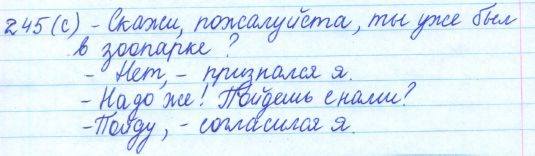 245(с) - Скажи, пожалуйста, ты уже был
в зоопарке?
- Нет, - признался я.
- Надо же! Пойдешь с нами?
- Пойду, - согласился я.